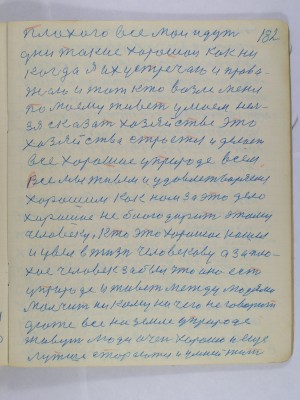 плохого все мои идут 182
дни такие хорошои как ни
когда я их устречаю и прова
жаю и тот кто возле меня
по моему живет
зя сказат хазяйства это
хазяйства стростся и делает
все хорошие уприроде всем
Все мы живем и удовлетваряемся
хорошим как нам за это дело
хорошие не благодарит этому
человеку. Кто это хорошие нашел
и увел в жизн человекову а запло
хие человек забыл это оно ест
уприроде и живет между людями
молчит ни кому ни чего не говорит
даже все на земле уприроде
живут люди очен хорошо и еще
лутше старается и умней жит